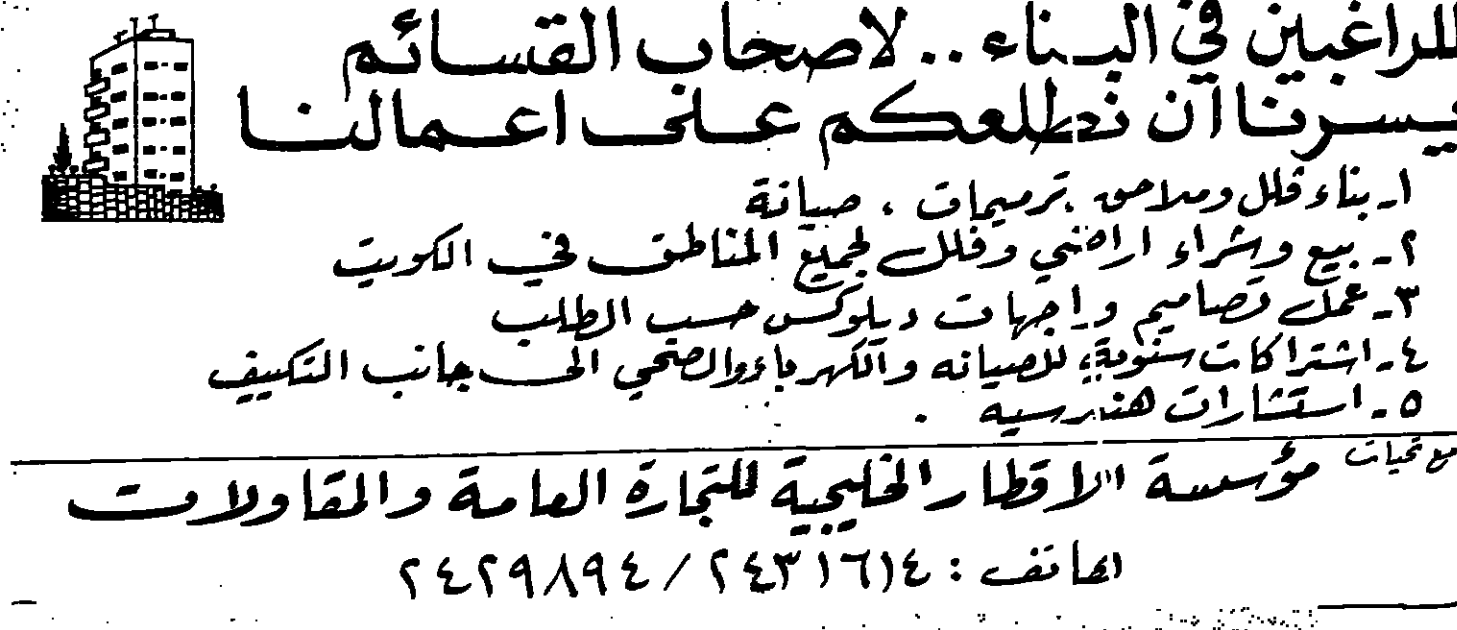 للراغبين في البناء .. لاصحاب القسائم
يسرنا ان نطلعكم على اعمالنا
١ـ بناء فلل وملاحق ، ترميمات ، صيانة
٢ـ بيع وشراء اراضي وفلل لجميع المناطق في الكويت
٣ـ عمل تصاميم واجهات ديلوكس حسب الطلب
٤ـ اشتراكات سنوية للصيانه والكهرباء والصحي الى جانب التكييف
٥ـ استشارات هندسيه .
مع تحيات مؤسسة الاقطار الخليجية للتجارة العامة والمقاولات
الهاتف : ٢٤٣١٦١٤ / ٢٤٢٩٨٩٤